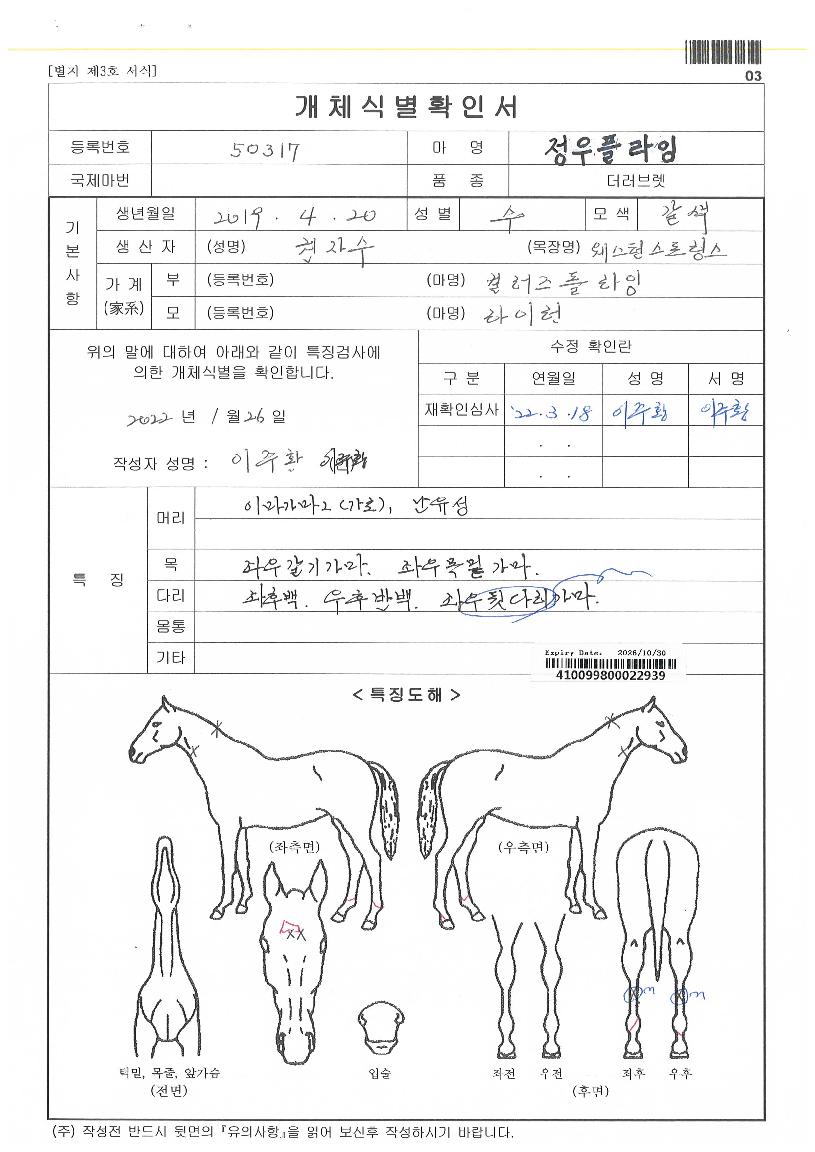 [별지 제3호 서식]
03
개체식별확인서
등록번호 50317 마 명 정우플라임
국제마번 품 종 더러브렛
기본사항
생년월일 2019 . 4 . 20 성 별 수 모 색 갈색
생 산 자 (성명) 권자수 (목장명) 웨스턴스트링스
가 계 (家系) 부 (등록번호) (마명) 컬러즈플라잉
모 (등록번호) (마명) 라이헌
위의 말에 대하여 아래와 같이 특징검사에
의한 개체식별을 확인합니다.
2022 년 1 월 26 일
작성자 성명 : 이주환 이주환
수정 확인란
구 분 연월일 성 명 서 명
재확인심사 '22.3.18 이주환 이주환
. .
. .
특 징
머리 이마가마2 (가로), 난유성
목 좌우갈기가마. 좌우목밑가마.
다리 좌후백. 우후반백. 좌우뒷다리가마.
몸통
기타
Expiry Date: 2026/10/30
410099800022939
< 특징도해 >
(좌측면) (우측면)
턱밑, 목줄, 앞가슴
(전면)
입술
좌전 우전 좌후 우후
(후면)
(주) 작성전 반드시 뒷면의 『유의사항』을 읽어 보신후 작성하시기 바랍니다.